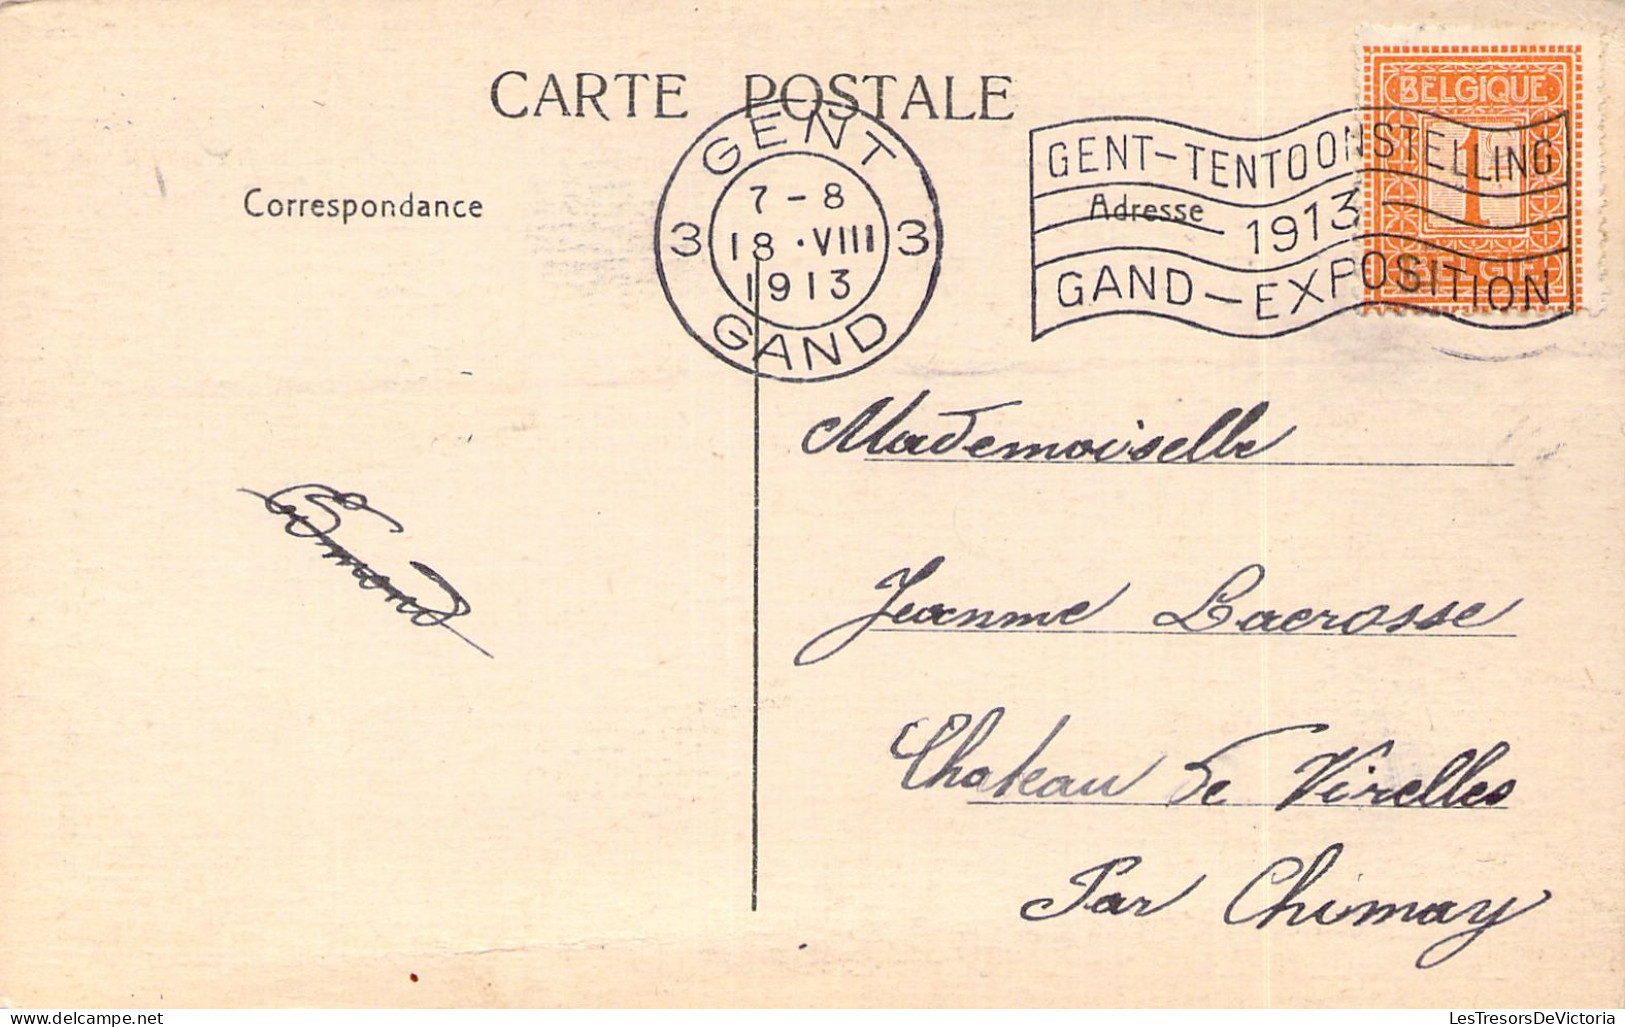 CARTE POSTALE
Correspondance
Adresse
GENT
7-8
3 18·VIII 3
1913
GAND
GENT-TENTOONSTELLING
1913
GAND-EXPOSITION
BELGIQUE
1c
BELGIË
Edmond
Mademoiselle
Jeanne Lacrosse
Chateau de Virelles
Par Chimay
delcampe.net
LesTresorsDeVictoria